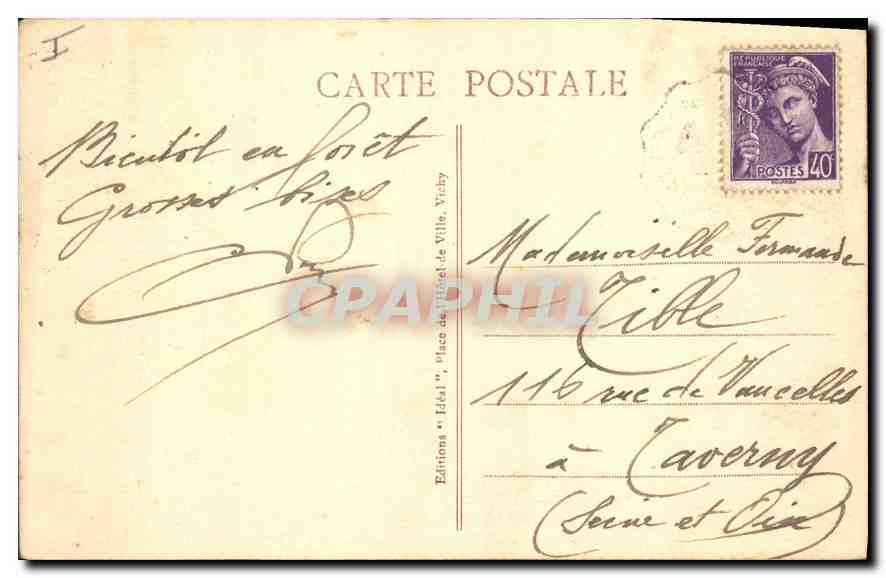 I
CARTE POSTALE
RÉPUBLIQUE
FRANÇAISE
POSTES 40c
Bientôt en forêt
Grosses bises
Editions " Idéal ", Place de l'Hôtel-de Ville, Vichy
Mademoiselle Fernande
Tible
116 rue de Vaucelles
à Taverny
(Seine et Oise)
CPAPHIL